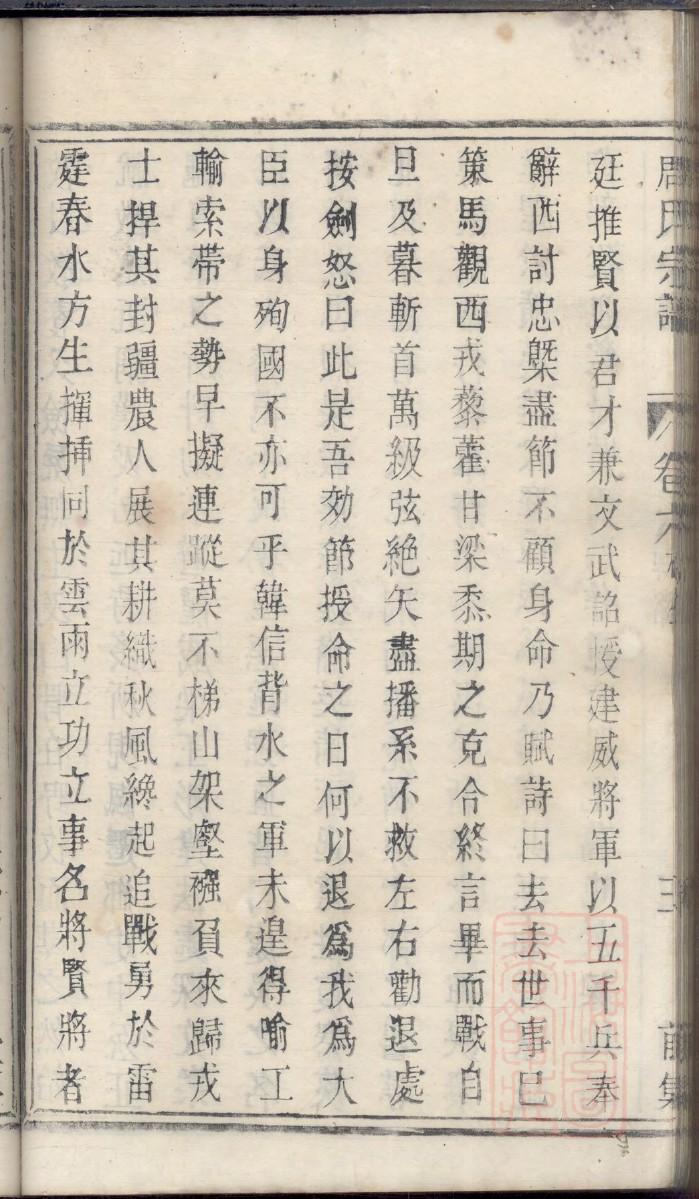 周氏宗譜 卷六 三 前集
廷推賢以君才兼文武詔授建威將軍以五千兵奉
辭西討忠槩盡節不顧身命乃賦詩曰去去世事巳
策馬觀西戎藜藿甘梁黍期之克令終言畢而戰自
旦及暮斬首萬級弦絶矢盡播系不救左右勸退處
按劍怒曰此是吾効節授命之日何以退爲我爲大
臣以身殉國不亦可乎韓信背水之軍未遑得喻工
輸索帶之勢早擬連蹤莫不梯山架壑襁負來歸戎
士捍其封疆農人展其耕織秋風纔起追戰勇於雷
霆春水方生揮揷同於雲雨立功立事名將賢將者